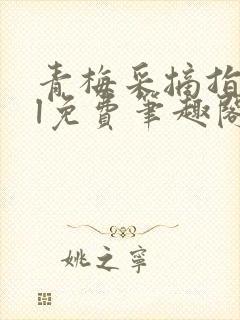 青梅采摘指
l免费笔趣阁
姚之宁